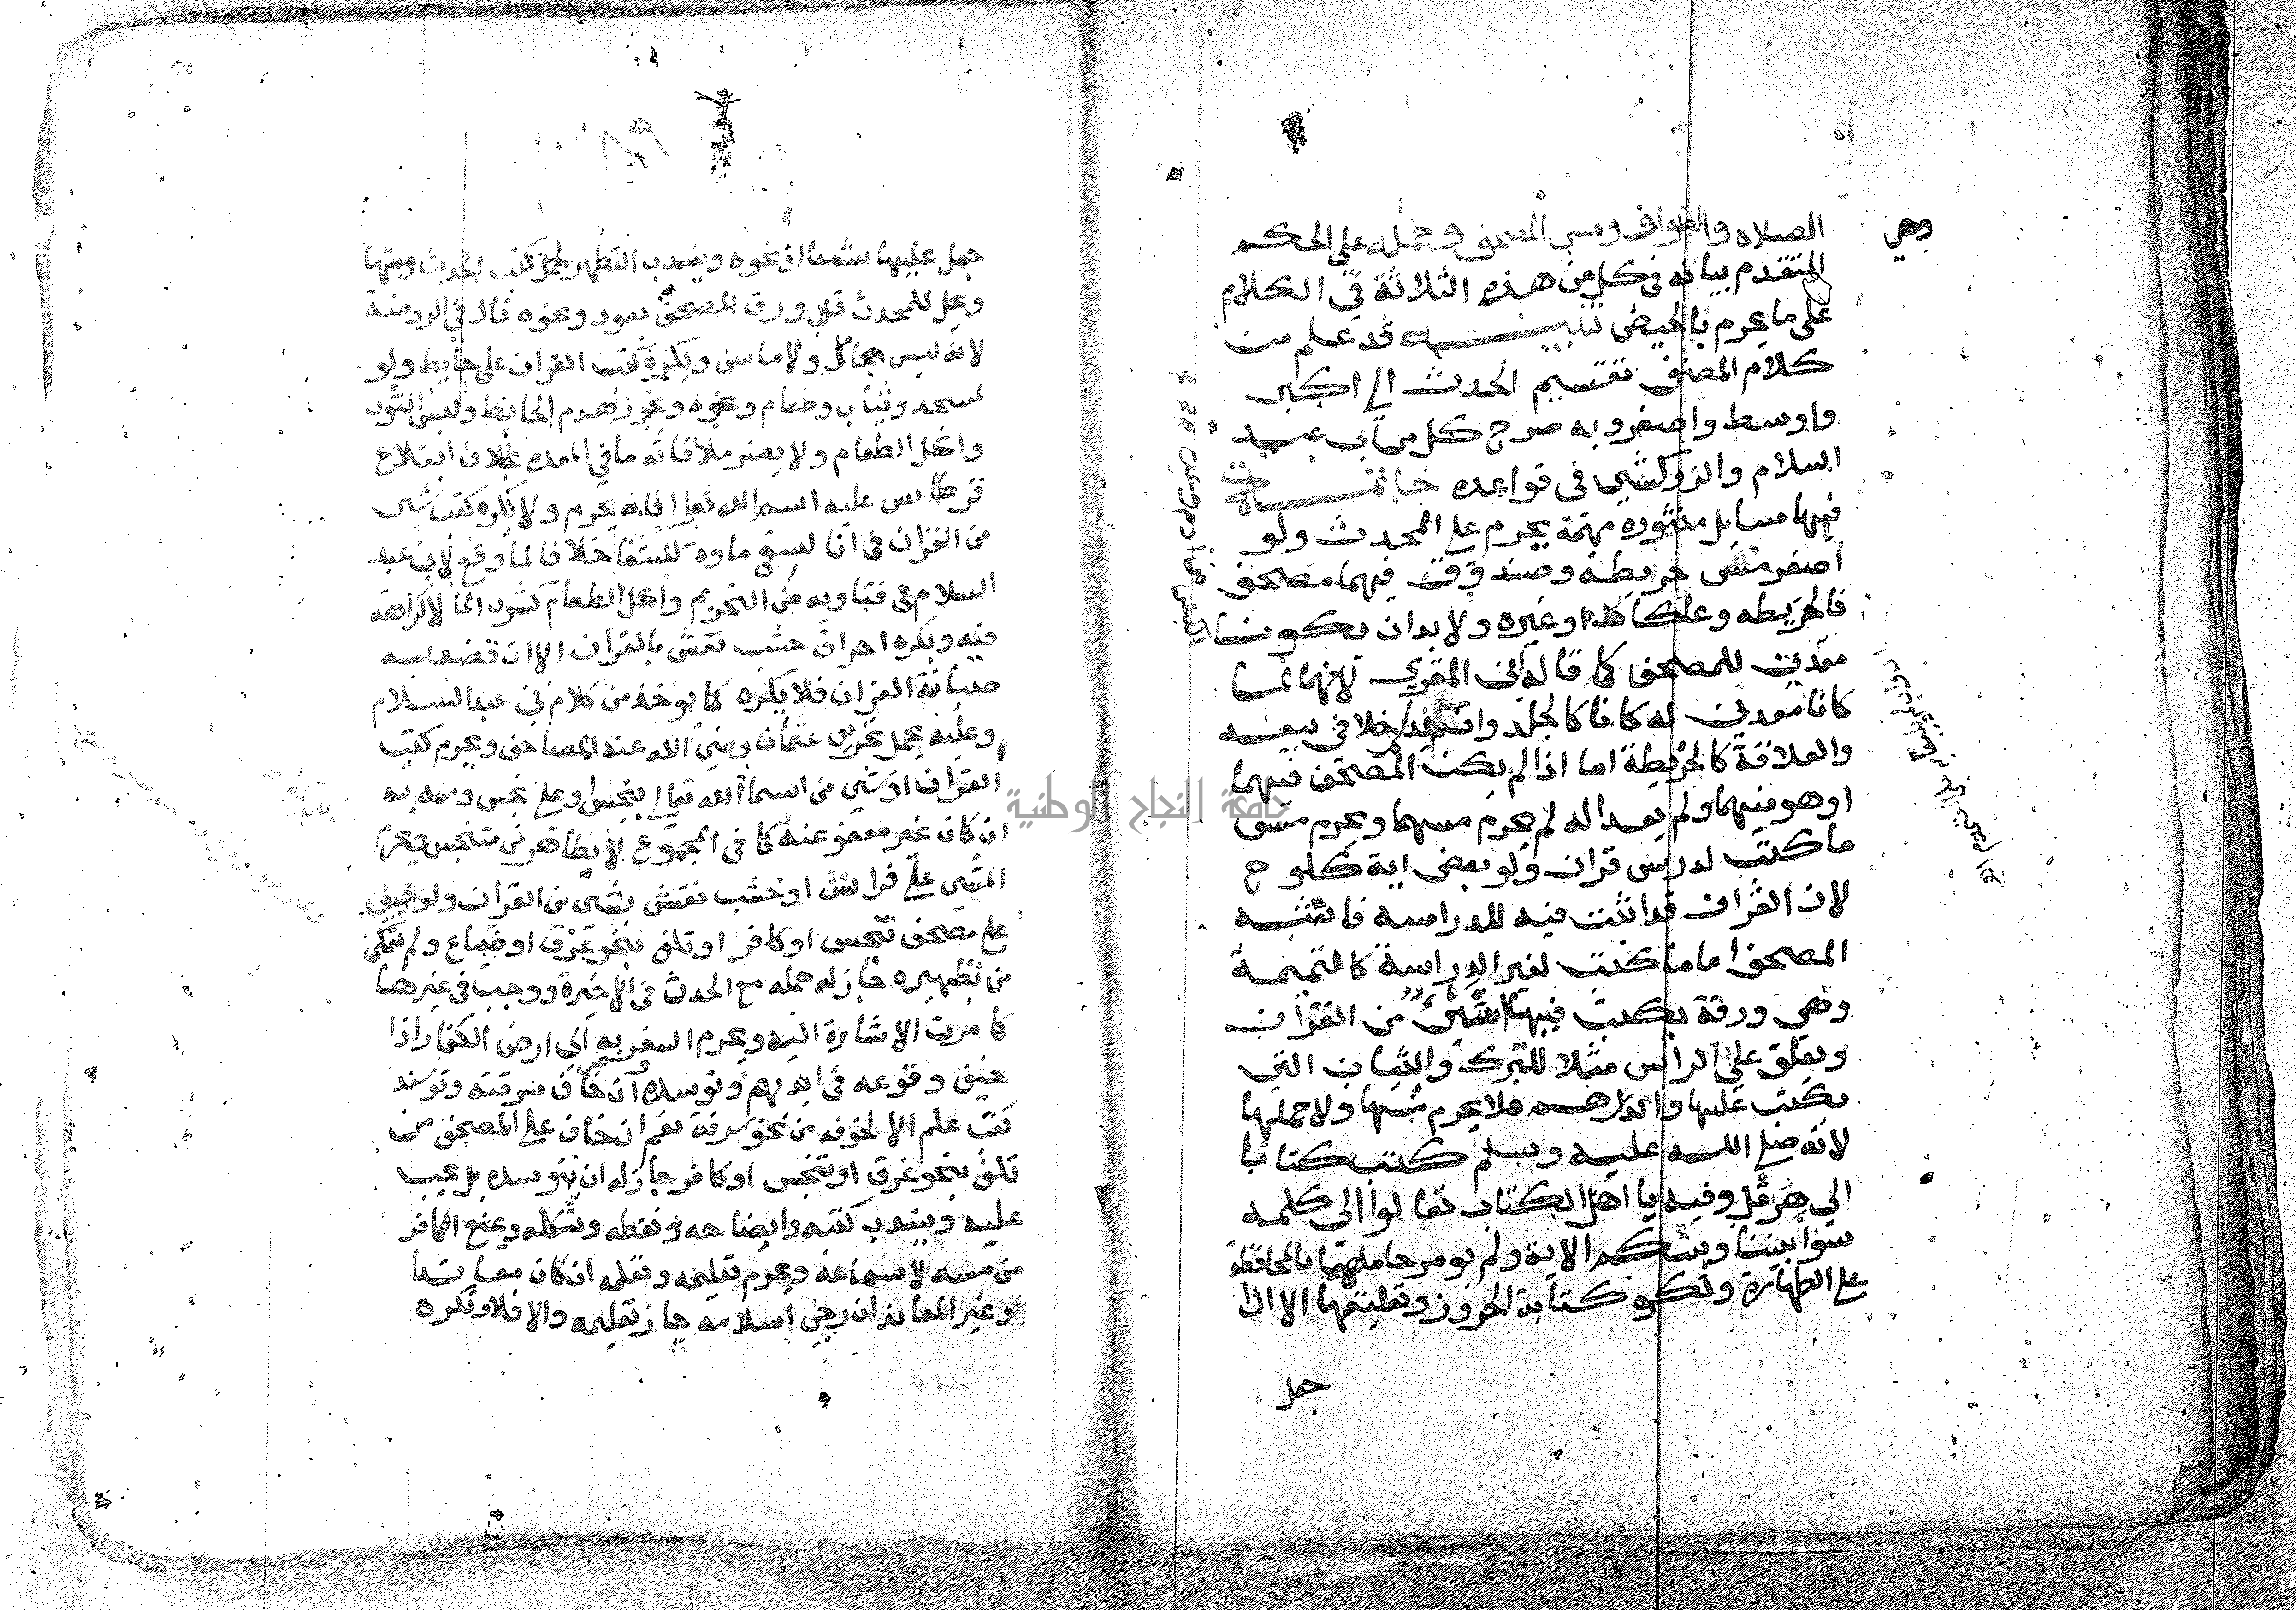 وهي
الصلاه والطواف ومس المصحف وحمله على الحكم
المتقدم بيانه في كل من هذه الثلاثة في الكلام
على ما يحرم بالحيض تنبيه قد علم من
كلام المصنف تقسيم الحدث الي اكبر
واوسط واصغر وبه صرح كل من ابن عبد
السلام والزركشي في قواعده خاتمة
فيها مسايل منثوره مهمة يحرم على المحدث ولو
اصغر مس خريطه وصندوق فيهما مصحف
فالخريطه وعاء كما هنا او غيره ولا بد ان يكونا
معدين للمصحف كما قاله ابن المقري لانهما لما
كانا معدين له كانا كالجلد وان لم يدخلا في بيعه
والعلاقة كالخريطة اما اذا لم يكن المصحف فيهما
او هو فيهما ولم يعدا له لم يحرم مسهما ويحرم مس
ما كتب لدرس قران ولو بعض اية كلوح
لان القران قد اثبت فيه للدراسة فاشبه
المصحف اما ما كتب لغير الدراسة كالتميمة
وهي ورقة يكتب فيها شيء من القران
وتعلق على الراس مثلا للتبرك والثياب التي
يكتب عليها والدراهم فلا يحرم مسها ولا حملها
لانه صلى الله عليه وسلم كتب كتابا
الي هرقل وفيه يا اهل الكتاب تعالوا الي كلمة
سوا بيننا وبينكم الاية ولم يومر حاملها بالمحافظة
على الطهارة وتكره كتابة الحروز وتعليقها الا اذا
جعل
٨٩
جعل عليها شمعا او نحوه ويندب التطهر لحمل كتب الحديث ومسها
ويحل للمحدث قلب ورق المصحف بعود ونحوه قال في الروضة
لانه ليس بحامل ولا ماس ويكره كتب القران على حايط ولو
لمسجد وثياب وطعام ونحوه ويجوز هدم الحايط ولبس الثوب
واكل الطعام ولا يضر ملاقاته ما في المعده بخلاف ابتلاع
قرطاس عليه اسم الله تعالى فانه يحرم ولا يكره كتب شي
من القران في انا ليسقى ماوه للشفا خلافا لما وقع لابن عبد
السلام في فتاويه من التحريم واكل الطعام كشرب الما لا كراهة
فيه ويكره احراق خشب نقش بالقران الا ان قصد به
صيانة القران فلا يكره كما يوخذ من كلام ابن عبد السلام
وعليه يحمل تحريق عثمان رضي الله عنه المصاحف ويحرم كتب
القران او شي من اسما الله تعالى بنجس او على نجس ومسه به
ان كان غير معفو عنه كما في المجموع لا بطاهر من متنجس ويحرم
المشي على فراش او خشب نقش بشي من القران ولو خيف
على مصحف تنجس او كافر او تلف بنحو غرق او ضياع ولم يتمكن
من تطهره جاز له حمله مع الحدث في الاخيرة ووجب في غيرها
كما مرت الاشارة اليه ويحرم السفر به الى ارض الكفار اذا
خيف وقوعه في ايديهم وتوسده وان خاف سرقته وتوسد
كتب علم الا لخوف من نحو سرقة نعم ان خاف على المصحف من
تلف بنحو غرق او تنجس او كافر جاز له ان يتوسده بل يجب
عليه ويندب كتبه وايضاحه ونقطه وشكله ويمنع الكافر
من مسه لا سماعه ويحرم تعليمه وتعلمه ان كان معاندا
وغير المعاند ان رجي اسلامه جاز تعليمه والا فلا وتكره
جامعة النجاح الوطنية